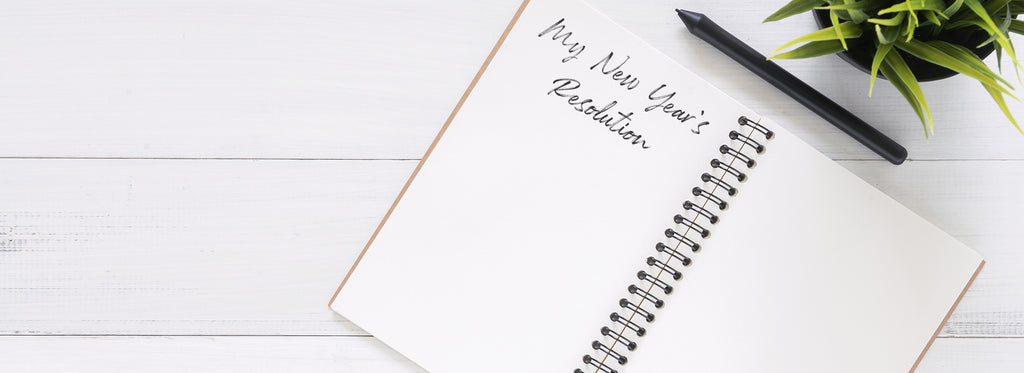 My New Year's
Resolution